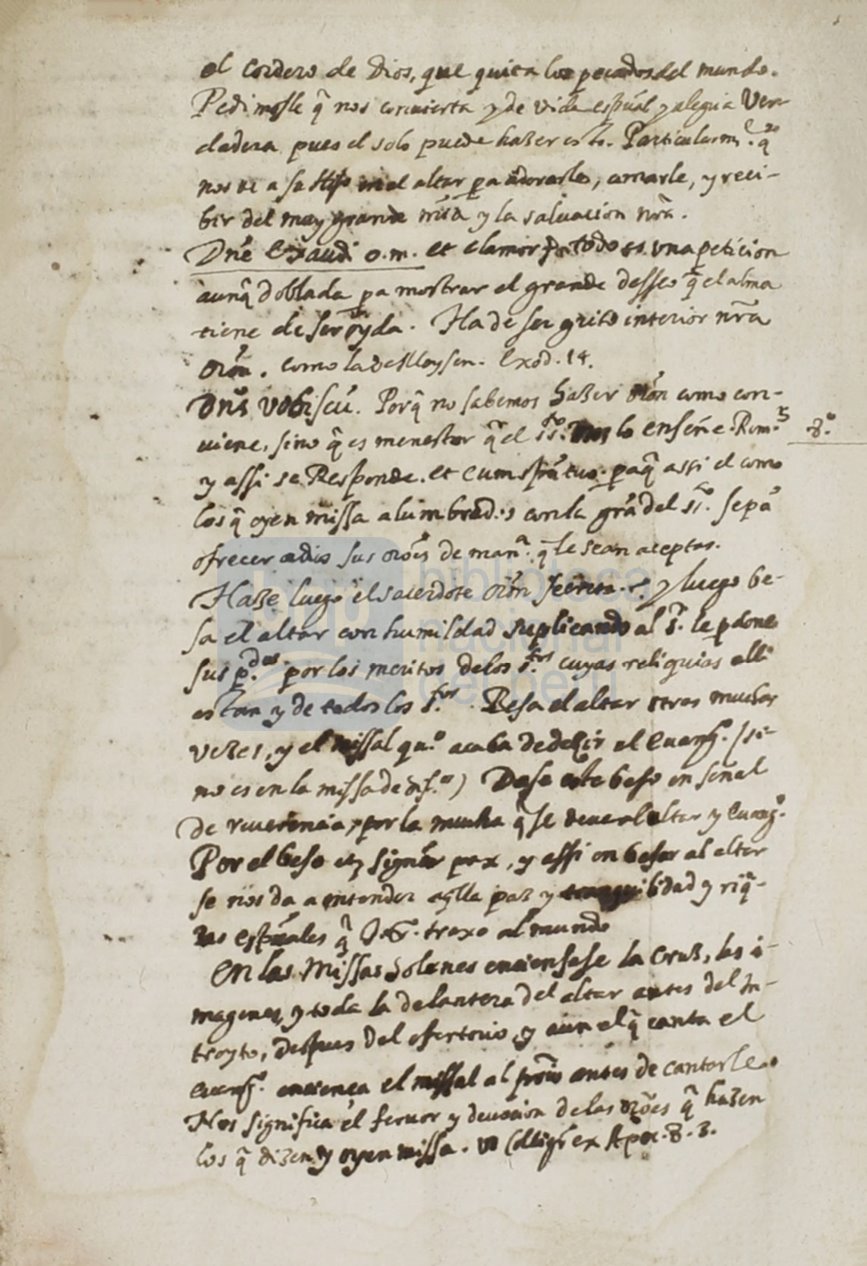 el Cordero de Dios, que quita los pecados del mundo.
Pedimosle q̃ nos convierta y de vida espũal y alegria Ver-
dadera pues el solo puede hazer esto. Particularmẽ. q̃
nos de a su Hijo en el altar p̃a adorarle, amarle, y reci-
bir del muy grande mĩa y la salvacion nr̃a.
Dñe Exaudi o.m. et clamor todo es una peticion
aunq̃ doblada p̃a mostrar el grande desseo q̃ el alma
tiene de ser oyda. Ha de ser grito interior nr̃a
orõn. como la de Moysen. Exod. 14.
Dñs Vobiscũ. Porq̃ no sabemos hazer orõn como con-
viene, sino q̃ es menester q̃ el s.to lo enseñe. Rom. 8.
y assi se Responde. et cum sp̃ũ tuo. p̃aq̃ assi el como
los q̃ oyen missa alumbrados con la gr̃a del s.to sepã
ofrecer a dios sus orões de man.a q̃ le sean aceptas.
Haze luego el sacerdote orõn secreta. y luego be-
sa el altar con humildad suplicando al S.r le p̃done
sus p.dos por los meritos de los S.tos cuyas reliquias alli
estan y de todos los S.tos. Besa el altar otras muchas
vezes, y el missal qu.o acaba de dezir el Evang.o (si
no es en la missa de dif.os) Dase este beso en señal
de reverencia, por la mucha q̃ se deve al altar y Evang.o
Por el beso se significa pax, y assi en besar al altar
se nos da a entender aq̃lla paz y tranquilidad y riq̃-
zas espũales q̃ J.C. traxo al mundo
En las Missas Solenes enciensase la Cruz, las i-
magenes, y toda la delantera del altar antes del In-
troyto, despues del ofertorio, y aun el q̃ canta el
evang.o enciença el missal al prõ antes de cantarle.
Nos significa el fervor y devocion de las orões q̃ hazen
los q̃ dizen y oyen missa. ut Colligi.r ex Apoc. 8. 3.